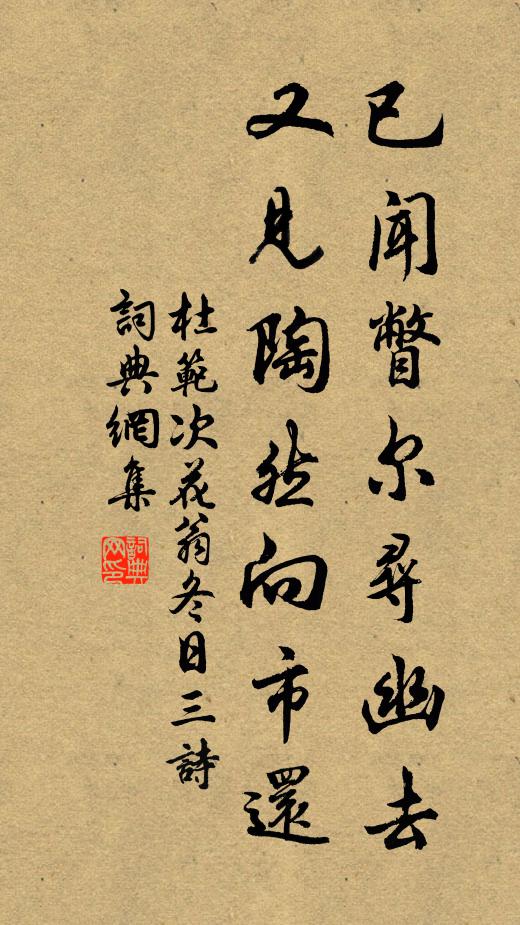 已聞瞥尔尋幽去
又見陶然向市還
杜範次花翁冬日三詩
詞典網集
詞典网印